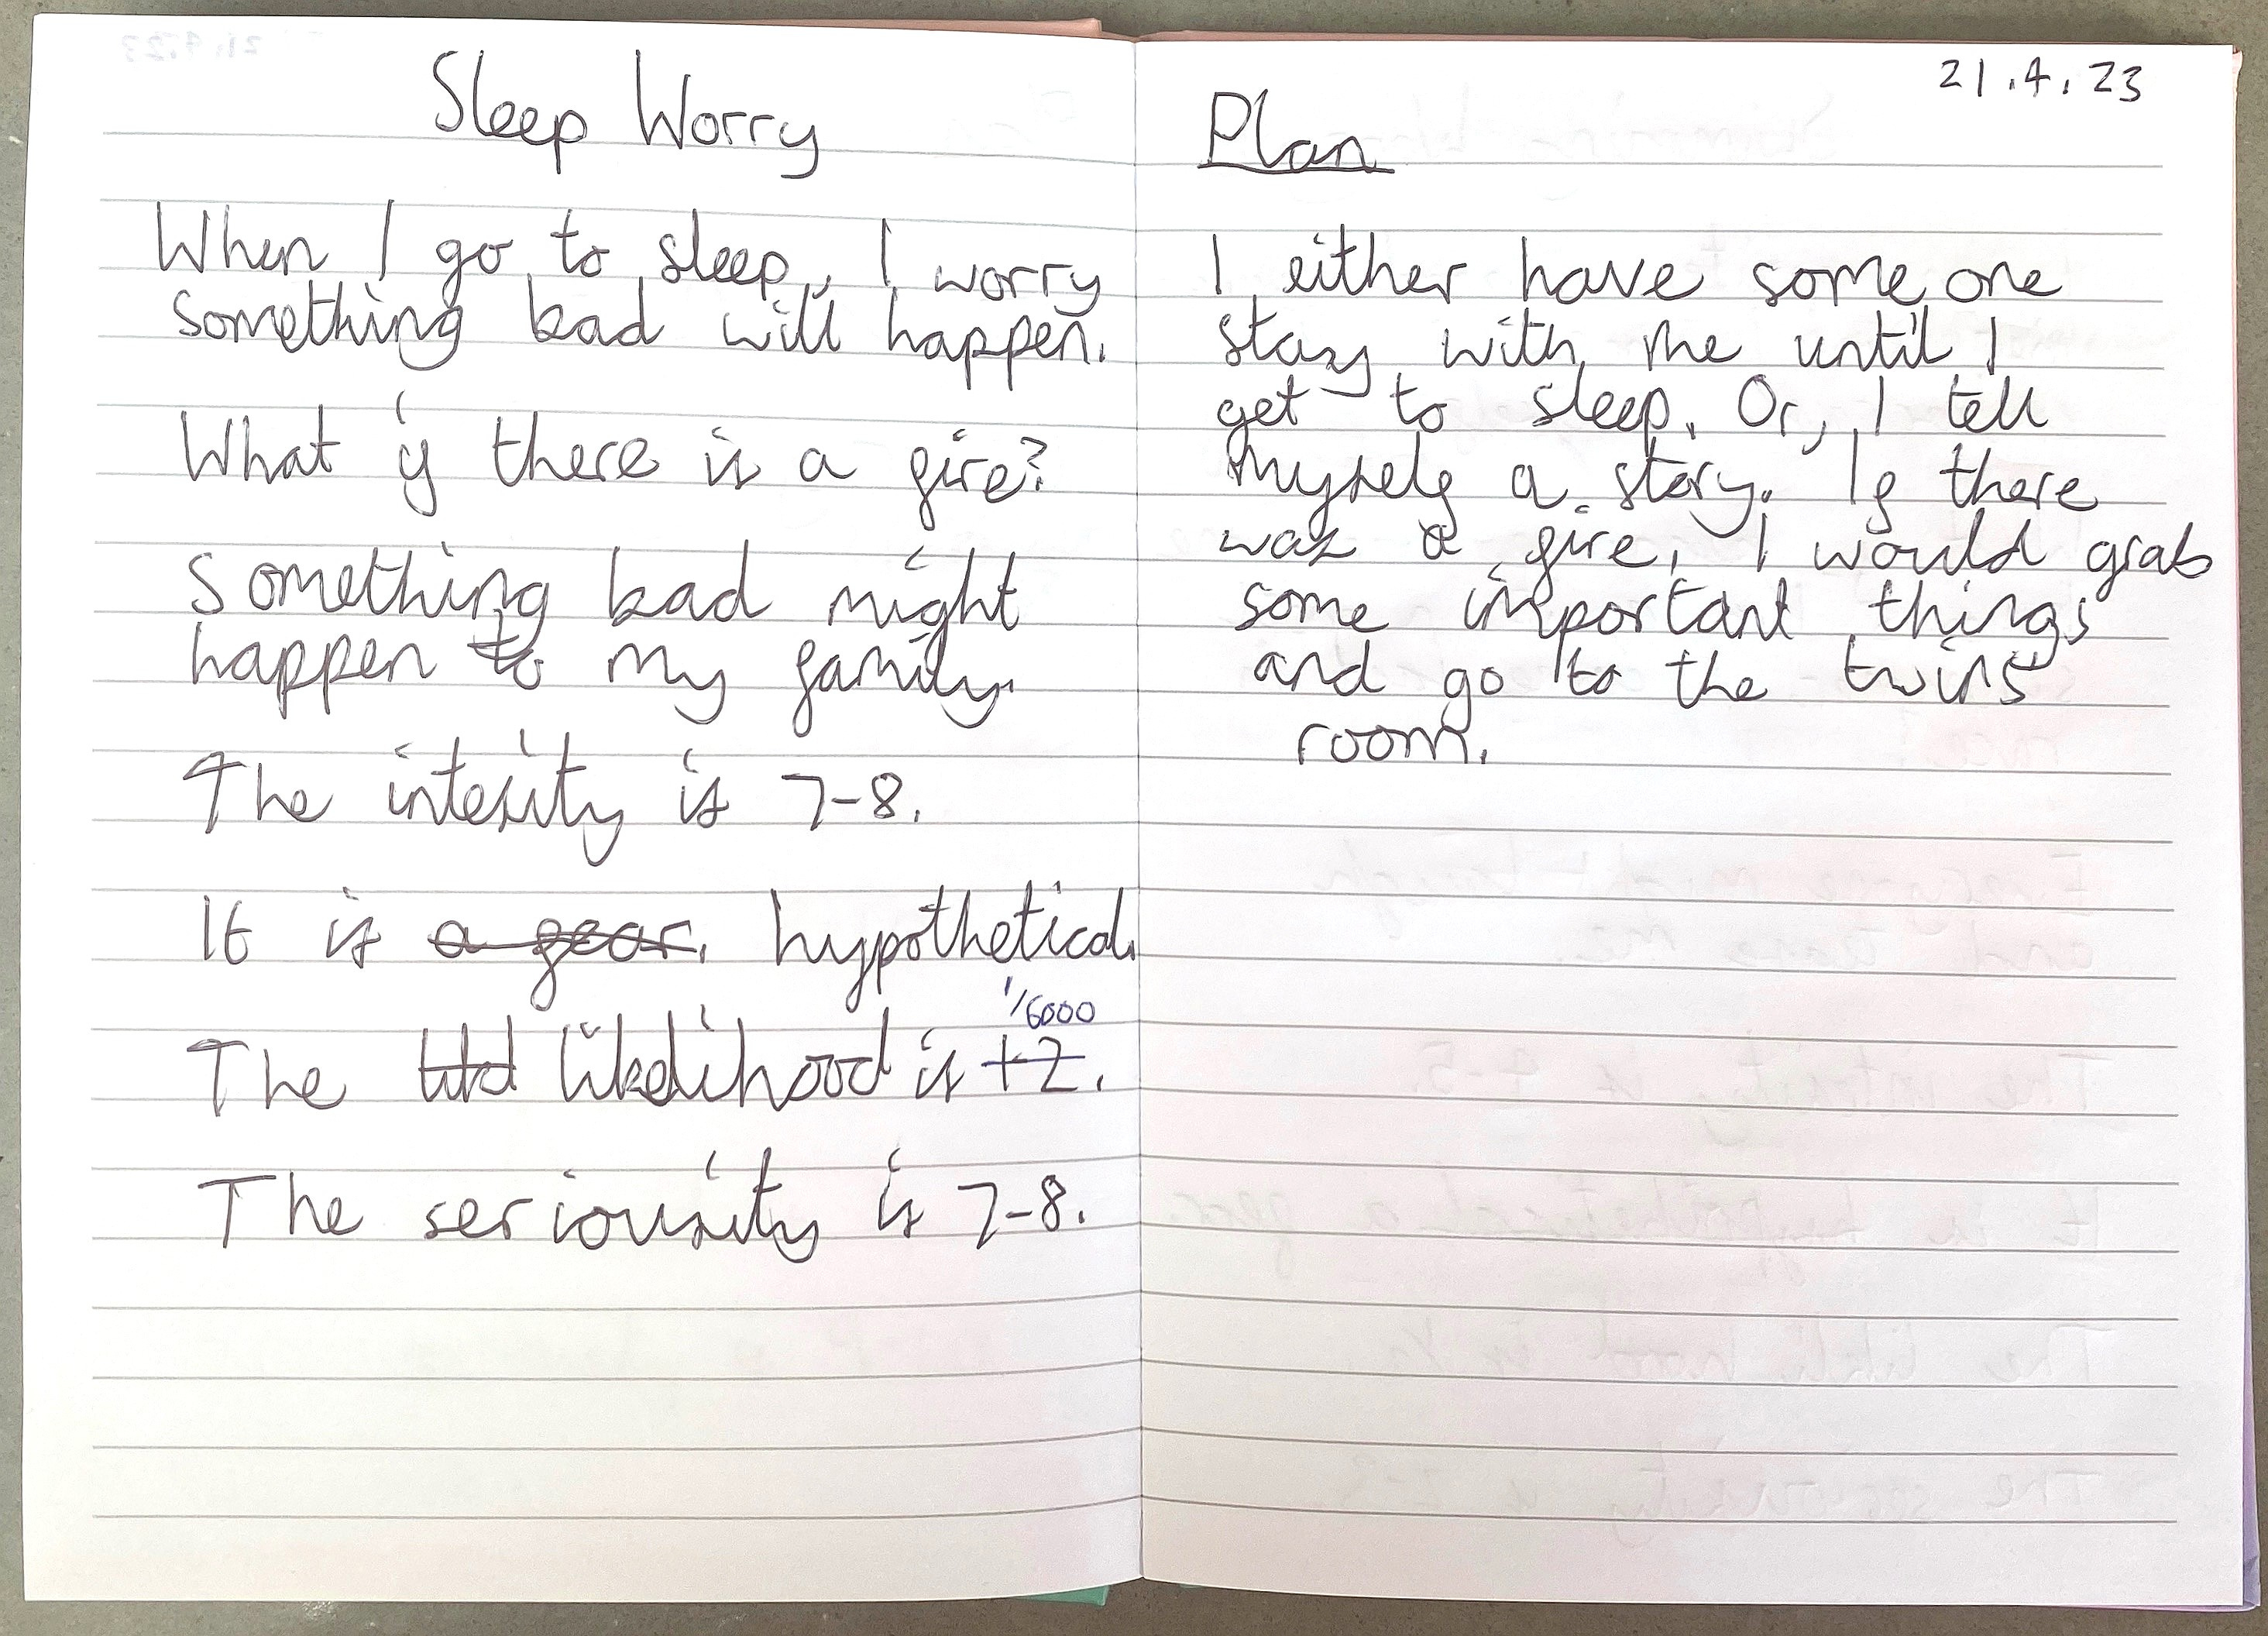 Sleep Worry
When I go to sleep, I worry
something bad will happen.
What if there is a fire?
Something bad might
happen to my family.
The intesity is 7-8.
It is a fear. hypothetical.
The likelihood is 1/6000 +2.
The seriousity is 7-8.
21.4.23
Plan
I either have some one
stay with me until I
get to sleep. Or, I tell
myself a story. If there
was a fire, I would grab
some important things
and go to the twins'
room.